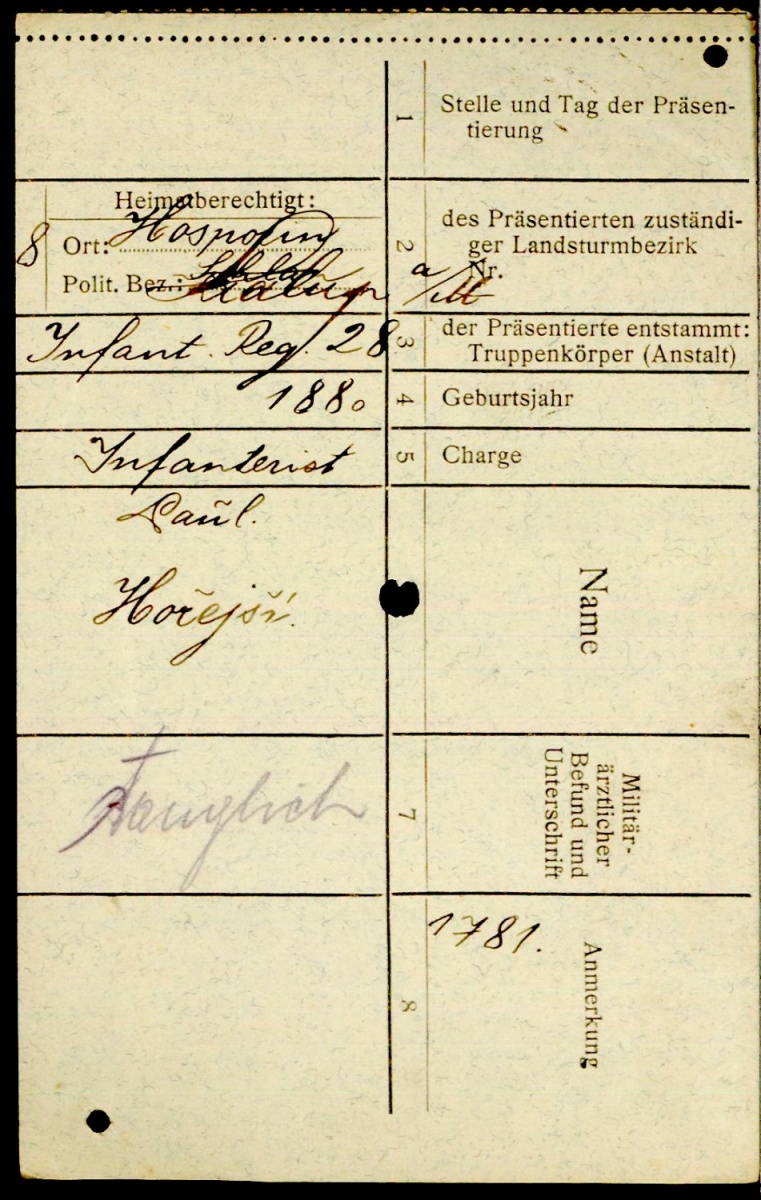 1 Stelle und Tag der Präsen-
tierung
Heimatberechtigt:
8 Ort: Hospozin
Polit. Bez.:
2 des Präsentierten zuständi-
ger Landsturmbezirk
Nr.
Infant. Reg. 28
3 der Präsentierte entstammt:
Truppenkörper (Anstalt)
1880
4 Geburtsjahr
Infanterist
5 Charge
Paul.
Hořejší.
Name
Tauglich
7 Militär-
ärztlicher
Befund und
Unterschrift
8 Anmerkung
1781.